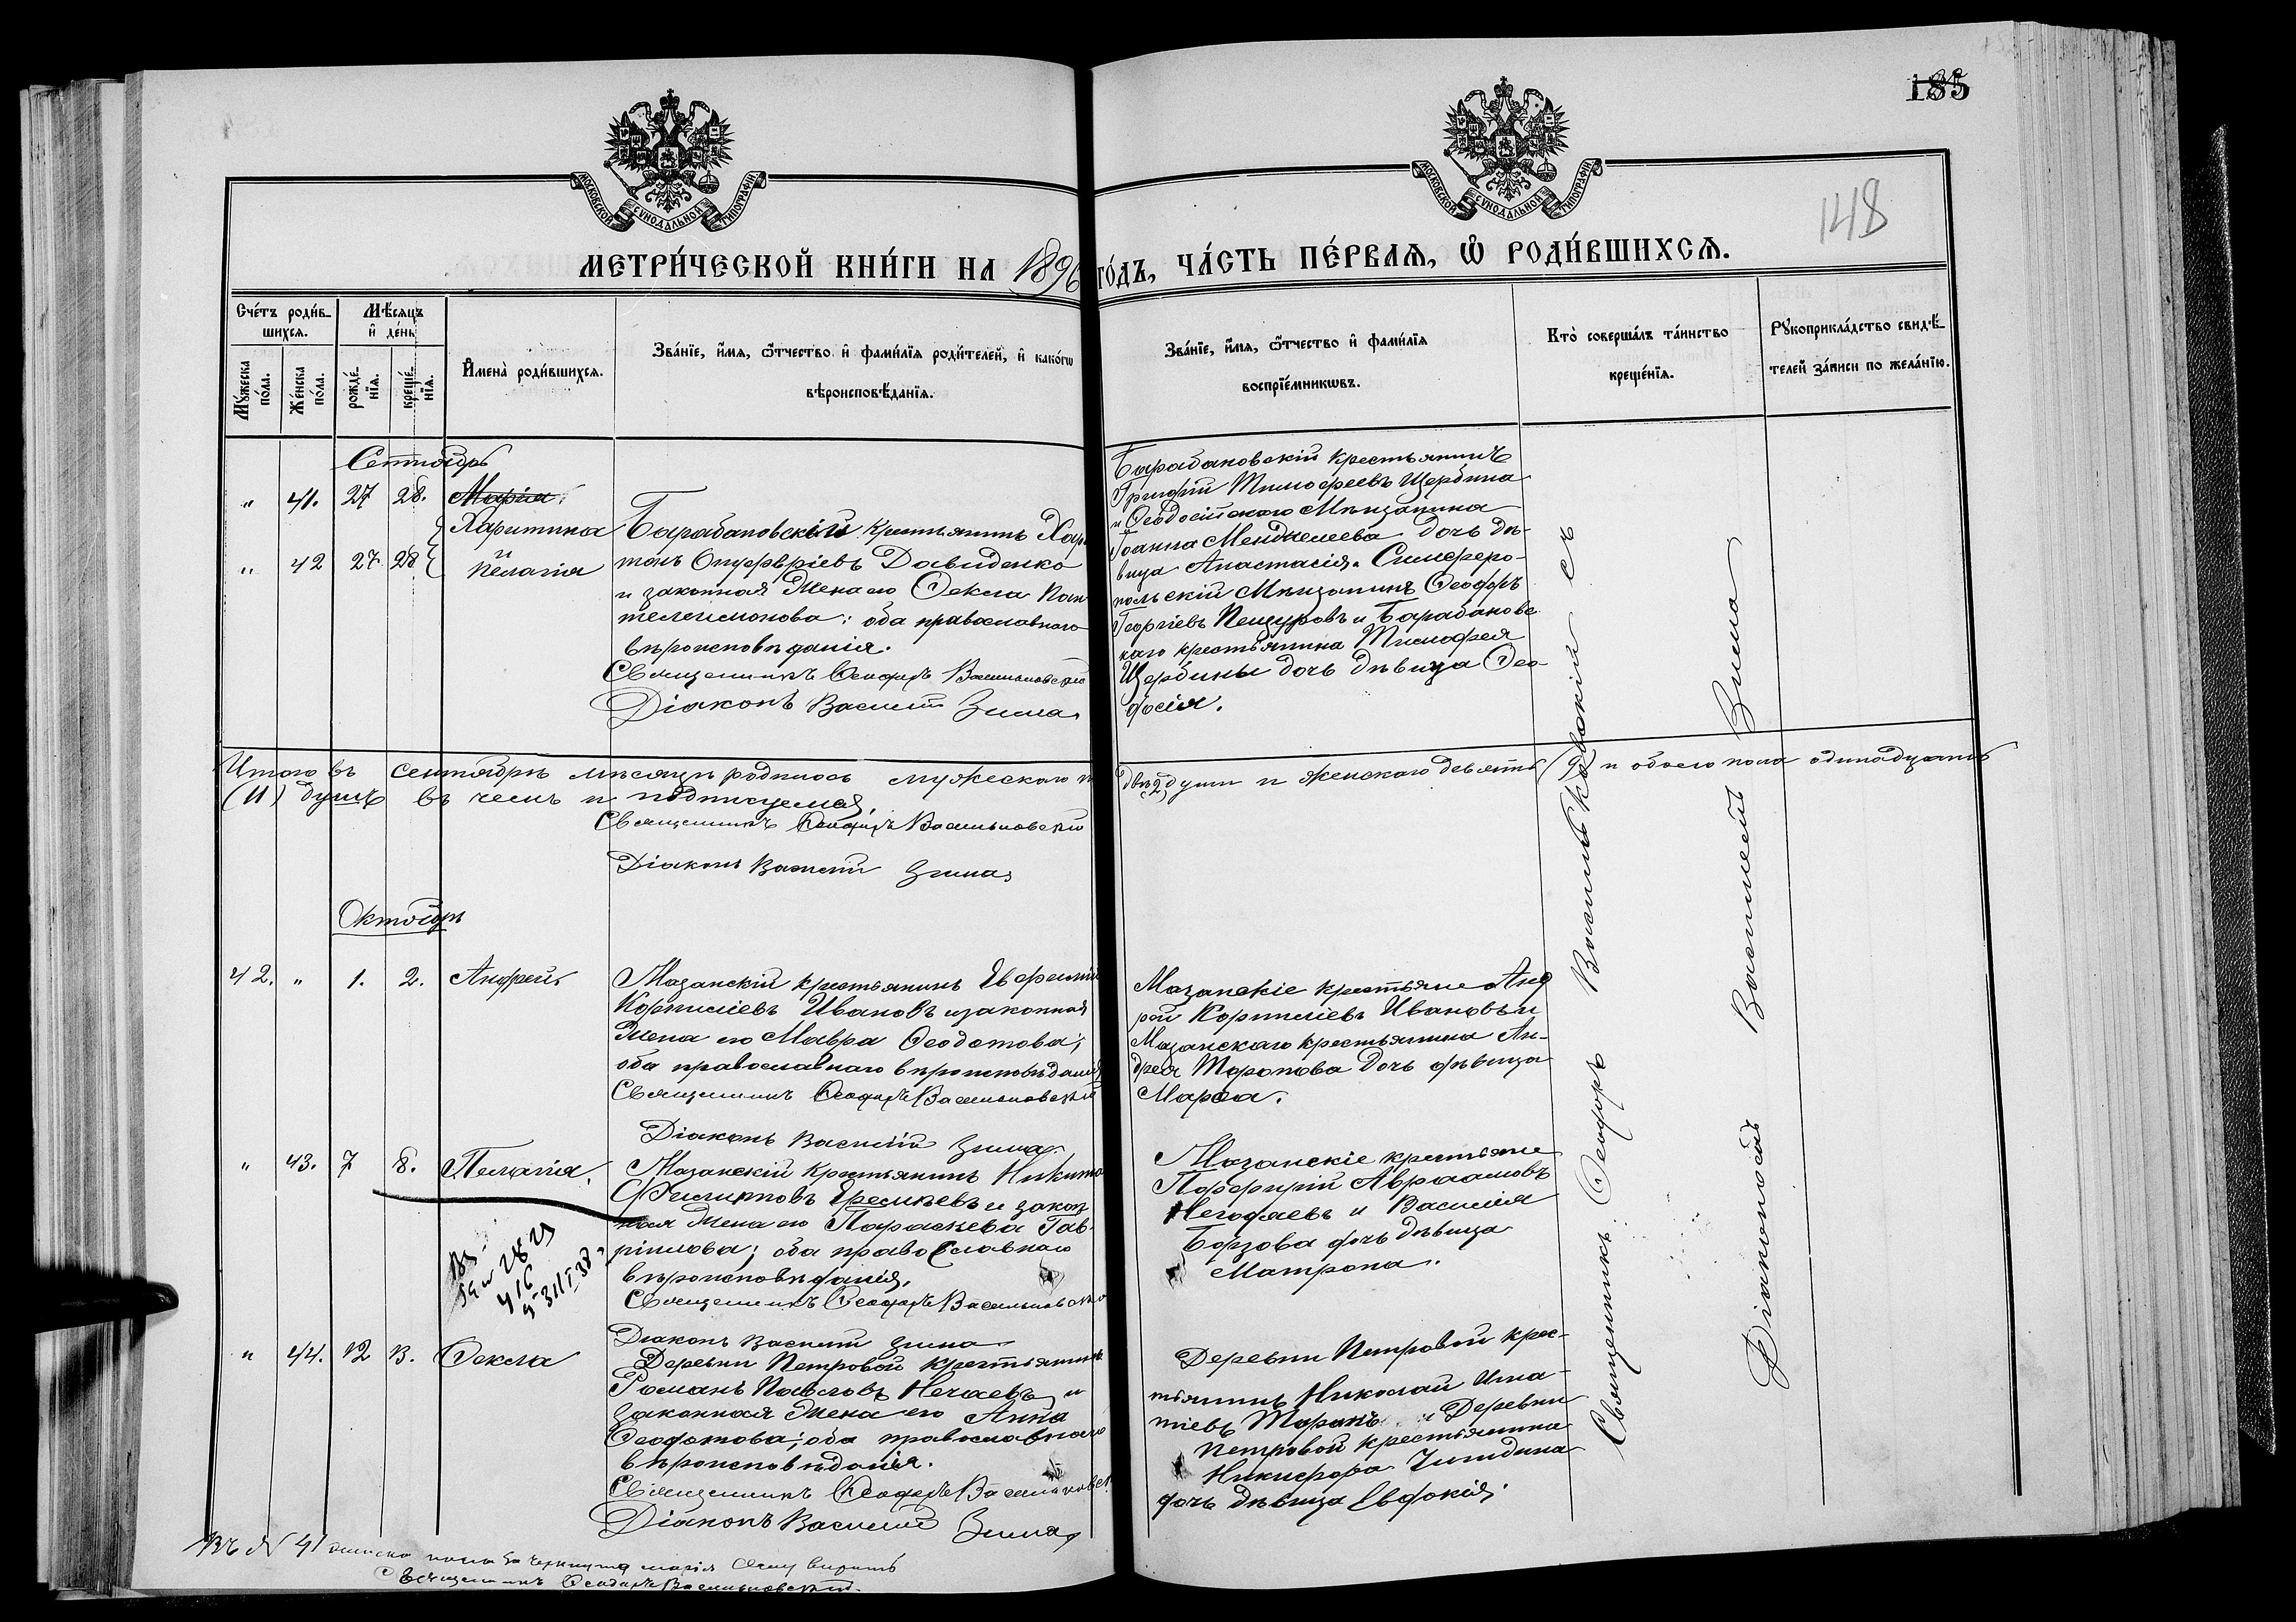 185
148
МОСКОВСКОЙ СѴНОДАЛЬНОЙ ТИПОГРАФІИ
МОСКОВСКОЙ СѴНОДАЛЬНОЙ ТИПОГРАФІИ
МЕТРИ́ЧЕСКОЙ КНИ́ГИ НА 1896 ГО́ДЪ, ЧА́СТЬ ПЕ́РВАѦ, Ѡ҆ РОДИ́ВШИХСѦ.
Сче́тъ роди́в-
шихсѧ.
Мꙋ́жеска
по́ла.
Же́нска
по́ла.
Мѣ́сѧцъ
и҆ де́нь
рожде́-
нїѧ.
креще́-
нїѧ.
И҆мена̀ роди́вшихсѧ.
Зва́нїе, и҆́мѧ, ѻ҆́тчество и҆ фамилїѧ роди́телей, и҆ како́гѡ
вѣроисповѣ́данїѧ.
Зва́нїе, и҆́мѧ, ѻ҆́тчество и҆ фами́лїѧ
воспрїе́мникѡвъ.
Кто̀ соверша́лъ та́инство
креще́нїѧ.
Рꙋкоприкла́дство свидѣ́-
телей за́писи по жела́нїю.
Сентябрь
" 41. 27 28. Марія
Харитина
и
" 42 27 28 Пелагія
Барабановскій крестьянинъ Хари
тонъ Онуфріевъ Давиденко
и законная жена его Ѳекла Пан
телеимонова; оба православнаго
вѣроисповѣданія.
Священникъ Ѳеодоръ Васильковскій
Діаконъ Василій Зима
Барабановскій крестьянинъ
Григорій Тимофеевъ Щербина
и Ѳеодосійскаго Мѣщанина
Іоанна Менджелеева дочь дѣ-
вица Анастасія. Симферо-
польскій Мѣщанинъ Ѳеодоръ
Георгіевъ Пещуровъ и Барабановс
каго крестьянина Тимофея
Щербины дочь дѣвица Ѳео-
досія.
Итого въ сентябрѣ мѣсяцѣ родилось мужескаго п
двѣ (2) души и женскаго девять (9) и обоего пола одинадцать
(11) душъ въ чемъ и подписуемся.
Священникъ Ѳеодоръ Васильковскій
Діаконъ Василій Зима
Октябрь
42. " 1. 2. Андрей
Мазанскій крестьянинъ Евфимій
Корниліевъ Ивановъ и законная
жена его Мавра Ѳеодотова;
оба православнаго вѣроисповѣданія
Священникъ Ѳеодоръ Васильковскій
Діаконъ Василій Зима
Мазанскіе крестьяне Анд
рей Корниліевъ Ивановъ и
Мазанскаго крестьянина Ан-
дрея Торопова дочь дѣвица
Марѳа.
" 43. 7 8. Пелагія.
Мазанскій крестьянинъ Никита
Филиповъ Еремѣевъ и закон
ная жена его Параскева Гав
ріилова; оба православнаго
вѣроисповѣданія.
Священникъ Ѳеодоръ Васильковскі
Діаконъ Василій Зима
Мазанскіе крестьяне
Порфирій Авраамовъ
Негодяевъ и Василія
Борзова дочь дѣвица
Матрона.
" 44. 12 13. Ѳекла
Деревни Петровой крестьянинъ
Романъ Павловъ Нечаевъ и
законная жена его Анна
Ѳеодотова; оба православнаго
вѣроисповѣданія.
Священникъ Ѳеодоръ Васильковск
Діаконъ Василій Зима
Деревни Петровой крес-
тьянинъ Николай Игна-
тіевъ и Деревни
Петровой крестьянина
Никифора
дочь дѣвица Евдокія.
Священникъ Ѳеодоръ Васильковскій съ
Діакономъ Василіемъ Зима
Въ № 41 женска пола зачеркнуто марія сему вѣрить
Священникъ Ѳеодоръ Васильковскій.